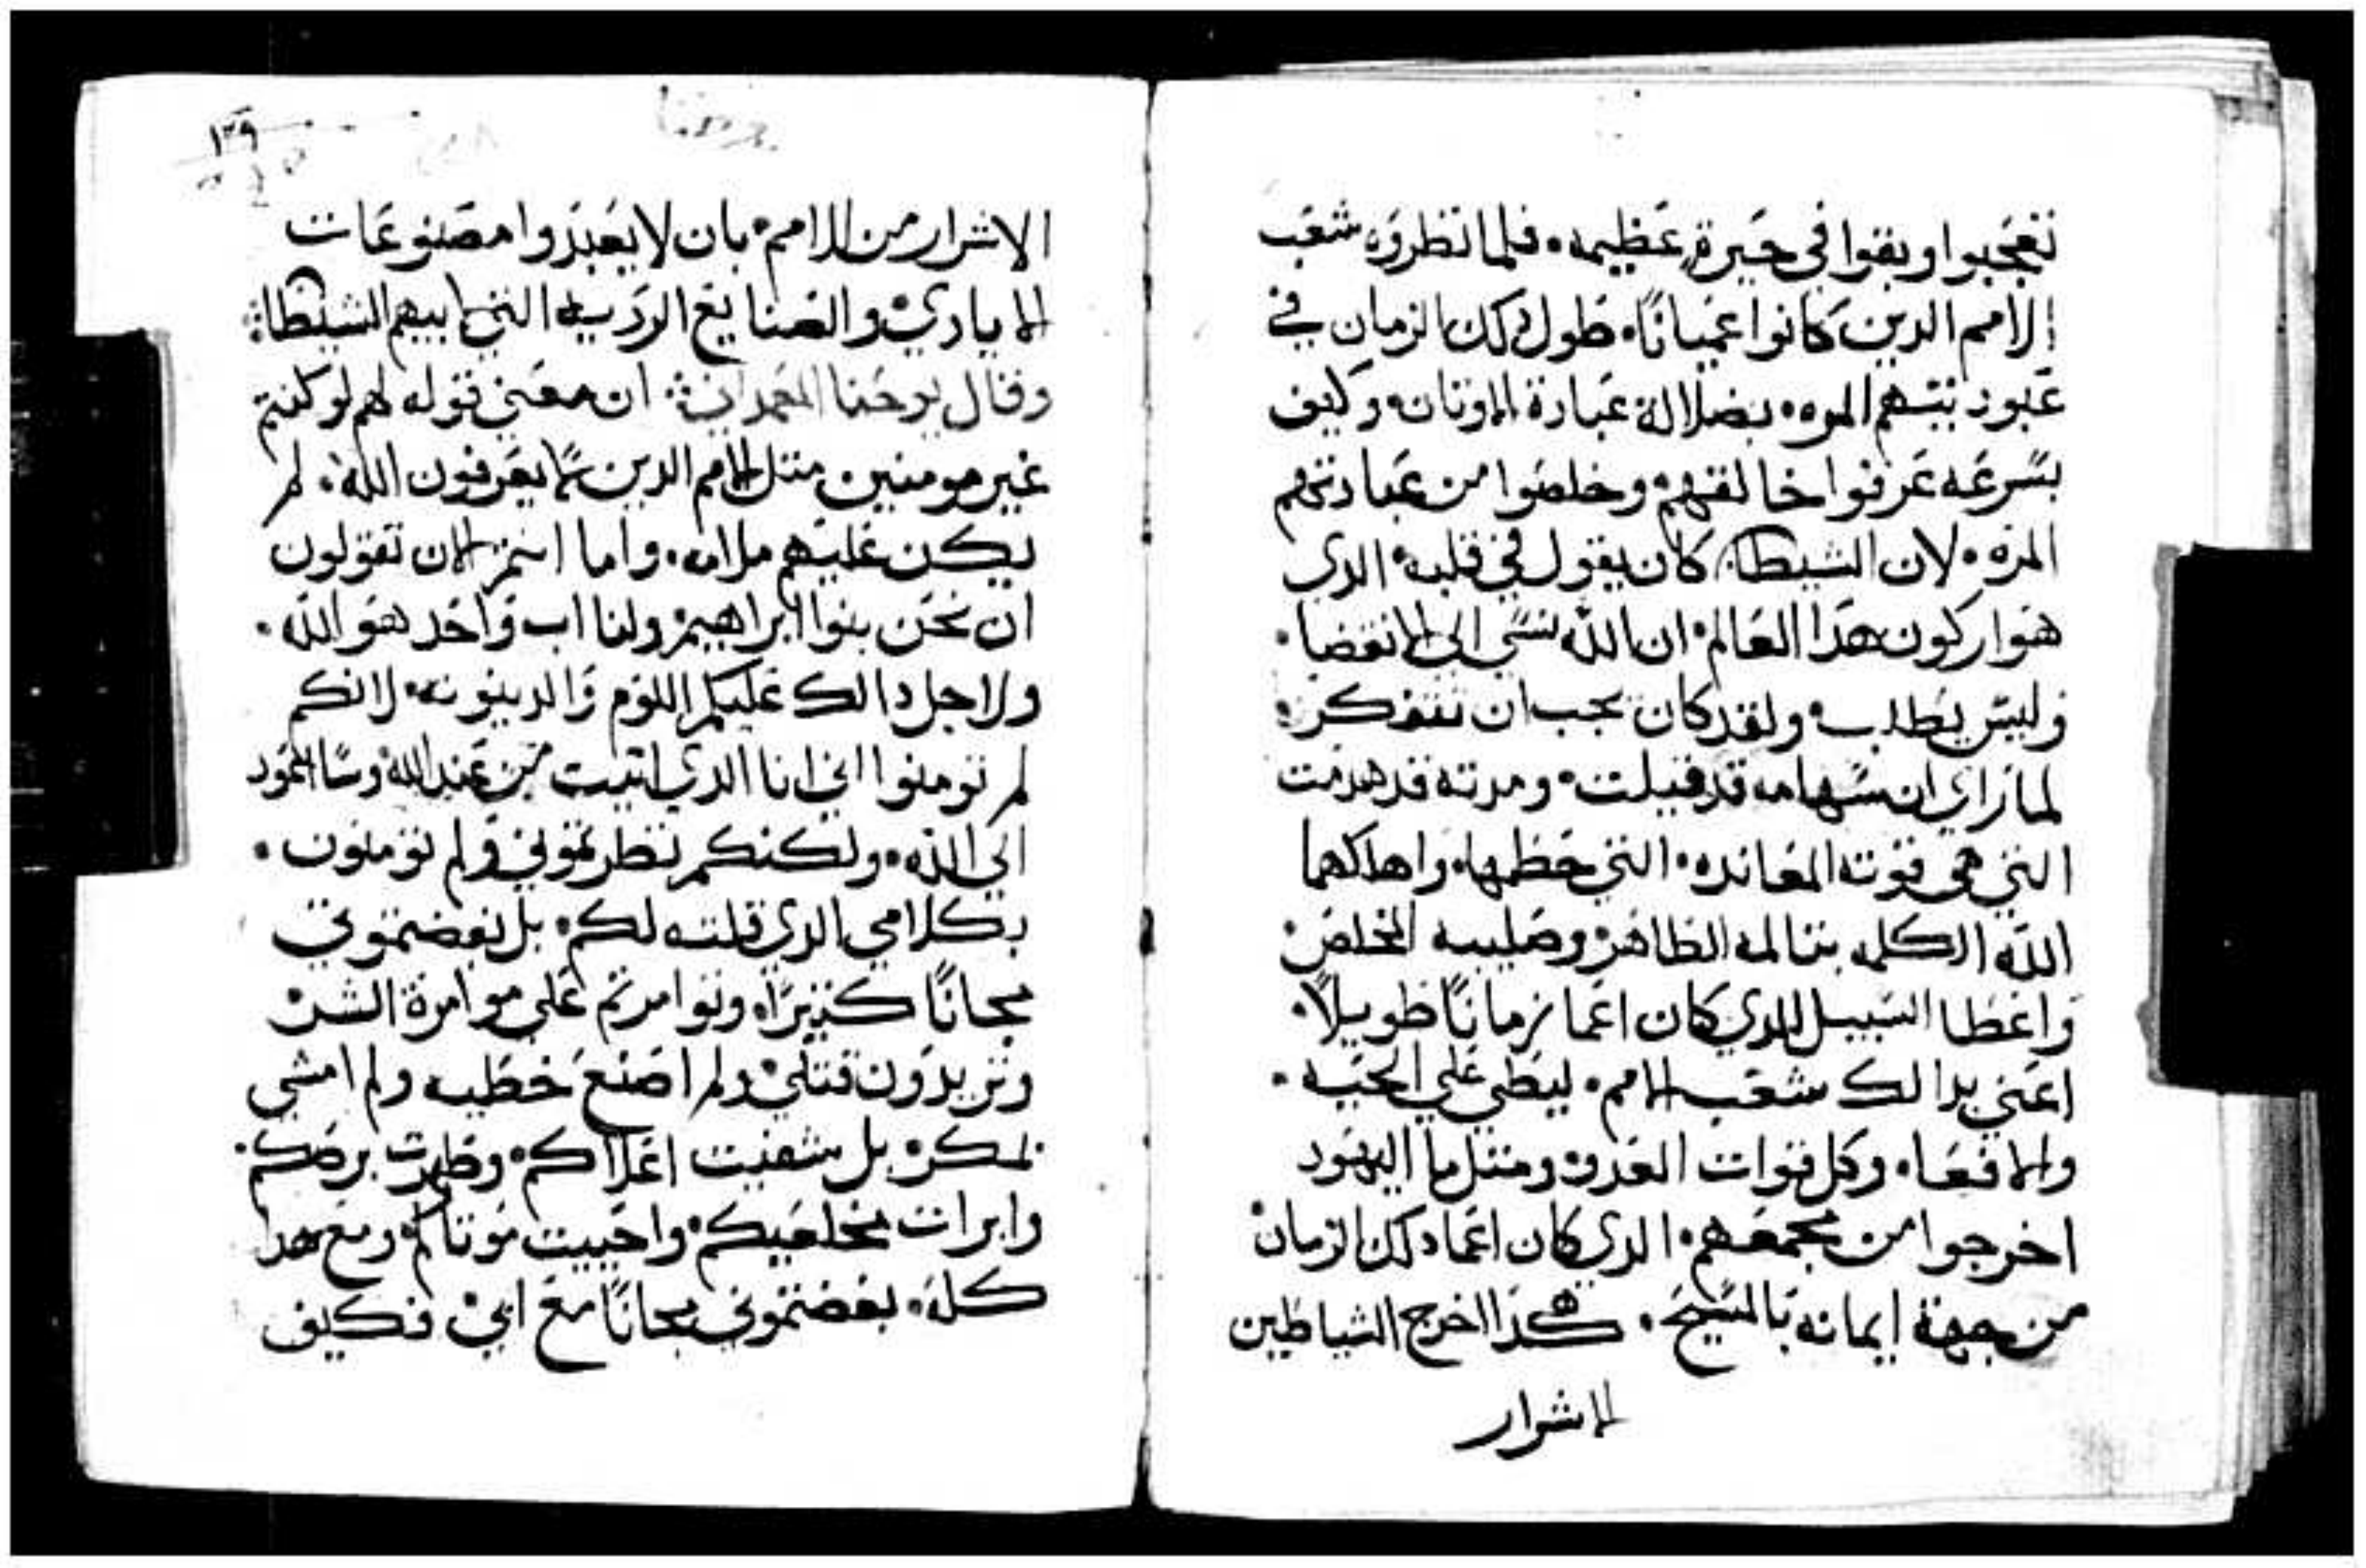 تعجبوا وبقوا في حيرة عظيمه. فلما نظروه شعب
الامم الدين كانوا عميانًا. طول دلك الزمان في
عبوديتهم المره. بضلالة عبادة الاوتان. وكيف
بسرعه عرفوا خالقهم. وخلصوا من عبادتهم
المره. لان الشيطان كان يقول في قلبه. الدي
هوا ركون هدا العالم. ان الله نسي الي الانقضا.
وليس يطلب. ولقد كان يجب ان نتفكر.
لما راي ان سهامه قد فنيلت. ومدنه قد هدمت
التي هي قوته المعانده. التي حطمها. واهلكهما
الله الكلمه بتالمه الظاهر وصليبه المخلص
واعطا السبيل للدي كان اعما زمانًا طويلًا.
اعني بدالك شعب الامم. ليطي علي الحيه.
والافعا. وكل قوات العدو. ومتل ما اليهود
اخرجوا من مجمعهم. الدي كان اعما دلك الزمان
من جهة ايمانه بالمسيح. هكدا اخرج الشياطين
الاشرار
١٣٩
يوحنا
الاشرار من الامم. بان لا يعبدوا مصنوعات
الايادي. والصنايع الرديه التي لابيهم الشيطان
وقال يوحنا المعمدان ان معني قوله لهم لو كنتم
غير مومنين متل الامم الدين لا يعرفون الله. لم
يكن عليهم ملامه. واما انتم الان تقولون
ان نحن بنوا ابراهيم ولنا اب واحد هو الله.
ولاجل دالك عليكم اللوم والدينونه. لانكم
لم تومنوا اني انا الدي اتيت من عند الله وسااعود
الي الله. ولكنكم نظرتموني ولم تومنون.
بكلامي الدي قلته لكم. بل بغضتموني
مجانًا كتيرًا. وتوامرتم علي موامرة الشر
وتريدون قتلي ولم اصنع خطيه ولم امشي
بمكر. بل شفيت اعلاكم. وطهرت برصكم.
وابرات مخلعيكم. واحييت موتاكم. ومع هدا
كله. بغضتموني مجانًا مع ابي. فكيف